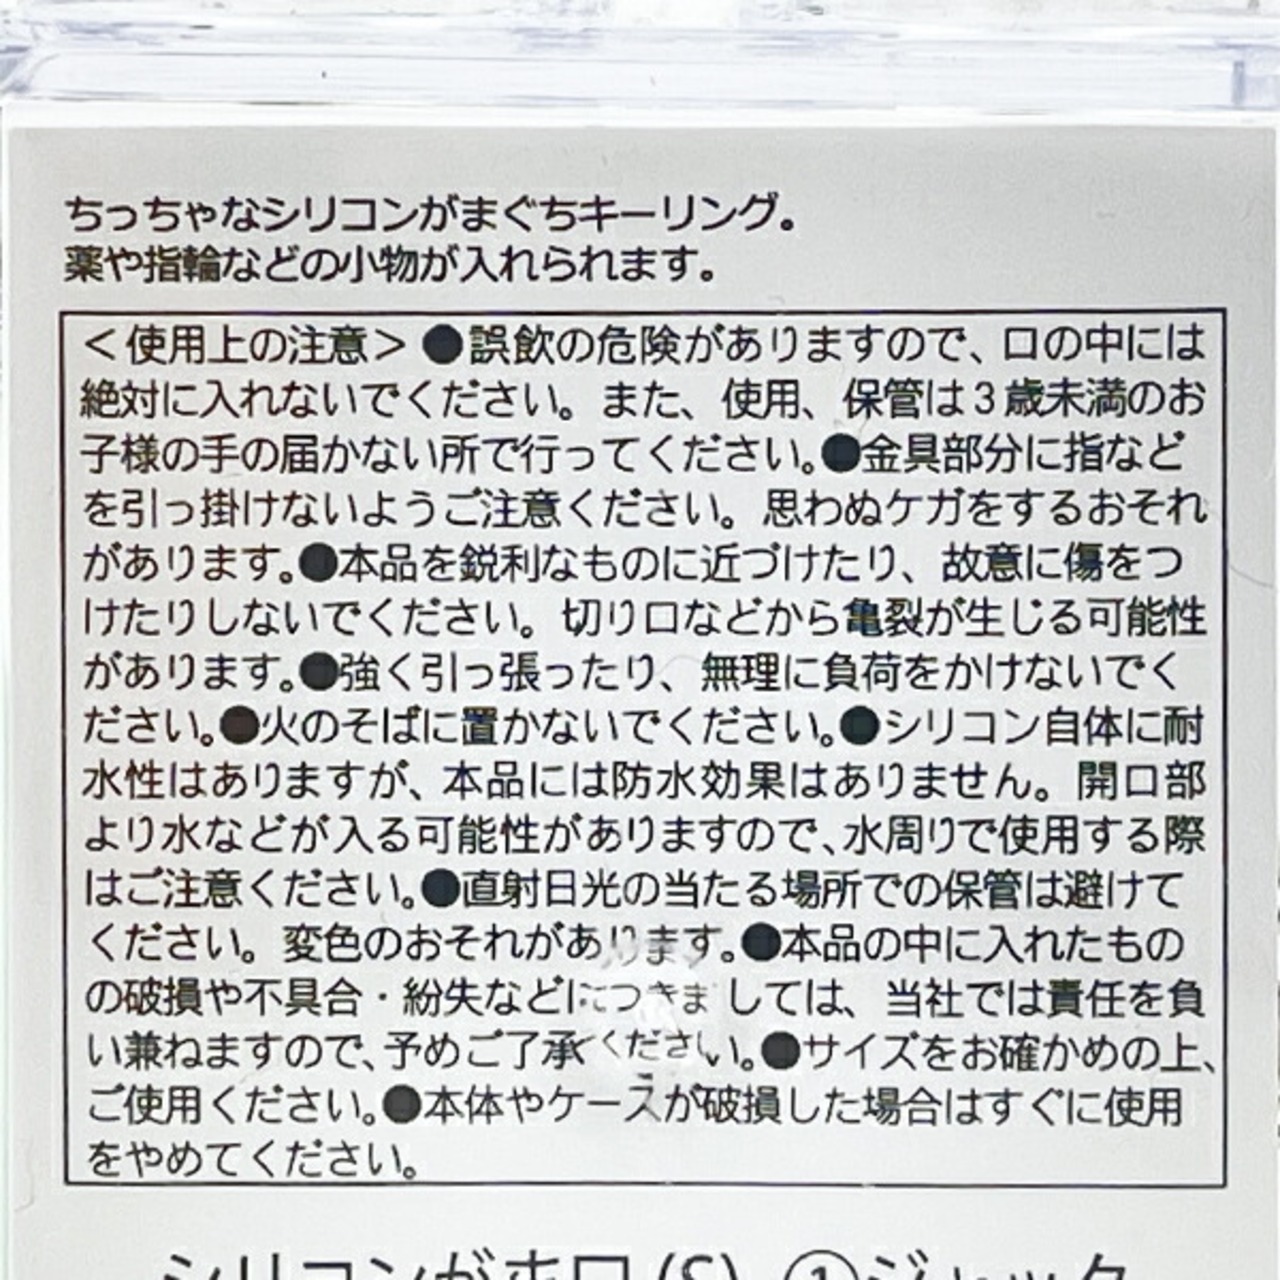 ちっちゃなシリコンがまぐちキーリング。
薬や指輪などの小物が入れられます。
＜使用上の注意＞●誤飲の危険がありますので、口の中には
絶対に入れないでください。また、使用、保管は3歳未満のお
子様の手の届かない所で行ってください。●金具部分に指など
を引っ掛けないようご注意ください。思わぬケガをするおそれ
があります。●本品を鋭利なものに近づけたり、故意に傷をつ
けたりしないでください。切り口などから亀裂が生じる可能性
があります。●強く引っ張ったり、無理に負荷をかけないでく
ださい。●火のそばに置かないでください。●シリコン自体に耐
水性はありますが、本品には防水効果はありません。開口部
より水などが入る可能性がありますので、水周りで使用する際
はご注意ください。●直射日光の当たる場所での保管は避けて
ください。変色のおそれがあります。●本品の中に入れたもの
の破損や不具合・紛失などにつきましては、当社では責任を負
い兼ねますので、予めご了承ください。●サイズをお確かめの上、
ご使用ください。●本体やケースが破損した場合はすぐに使用
をやめてください。